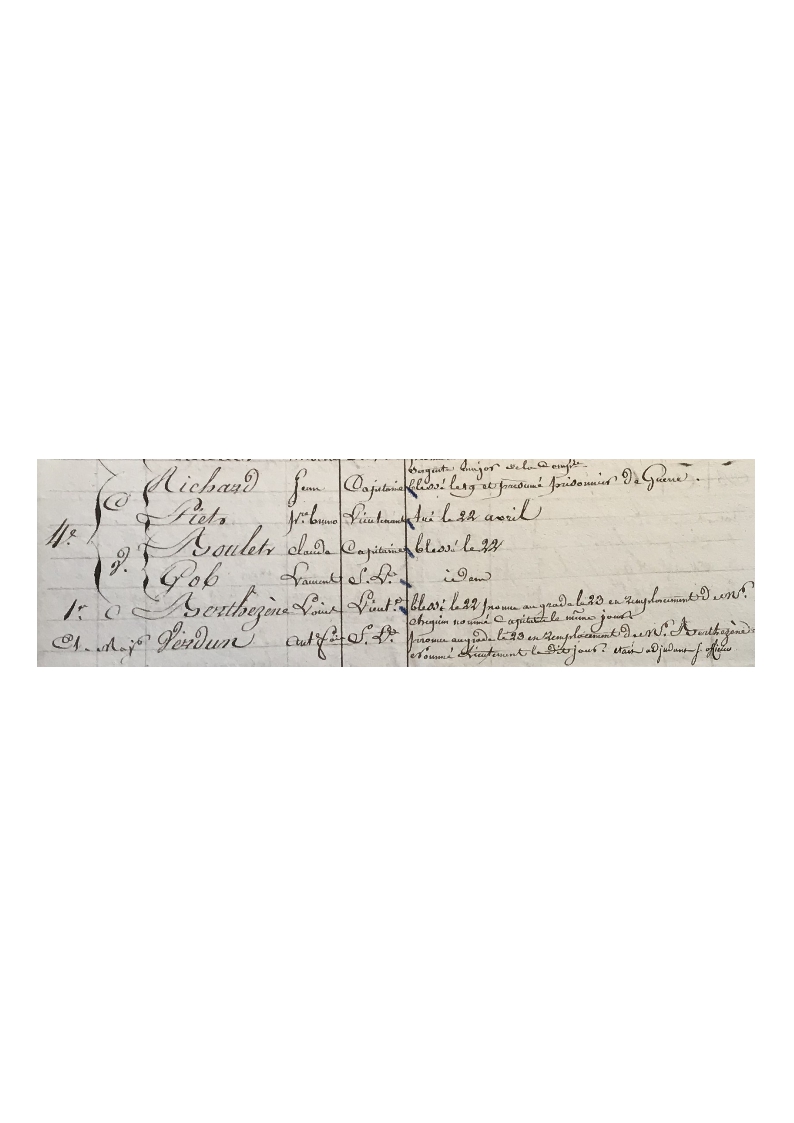 Sergent major de la Comp.ie
Richard Jean Capitaine blessé le 19 et présumé prisonnier de Guerre.
4.e
Piets p.re bruno Lieutenant tué le 22 avril
Boulets claude Capitaine blessé le 22
2.
Gob Laurent S. L.t idem
1.r Berthezène Louis Lieut.t blessé le 22 promu au grade le 23 en remplacement de M.r
nommé Capitaine le même jour
Et. Maj.r Verdun ant. S. L.t promu au grade le 23 en remplacement de M.r Berthezène
nommé Lieutenant le dit jour. était adjudant s. officier